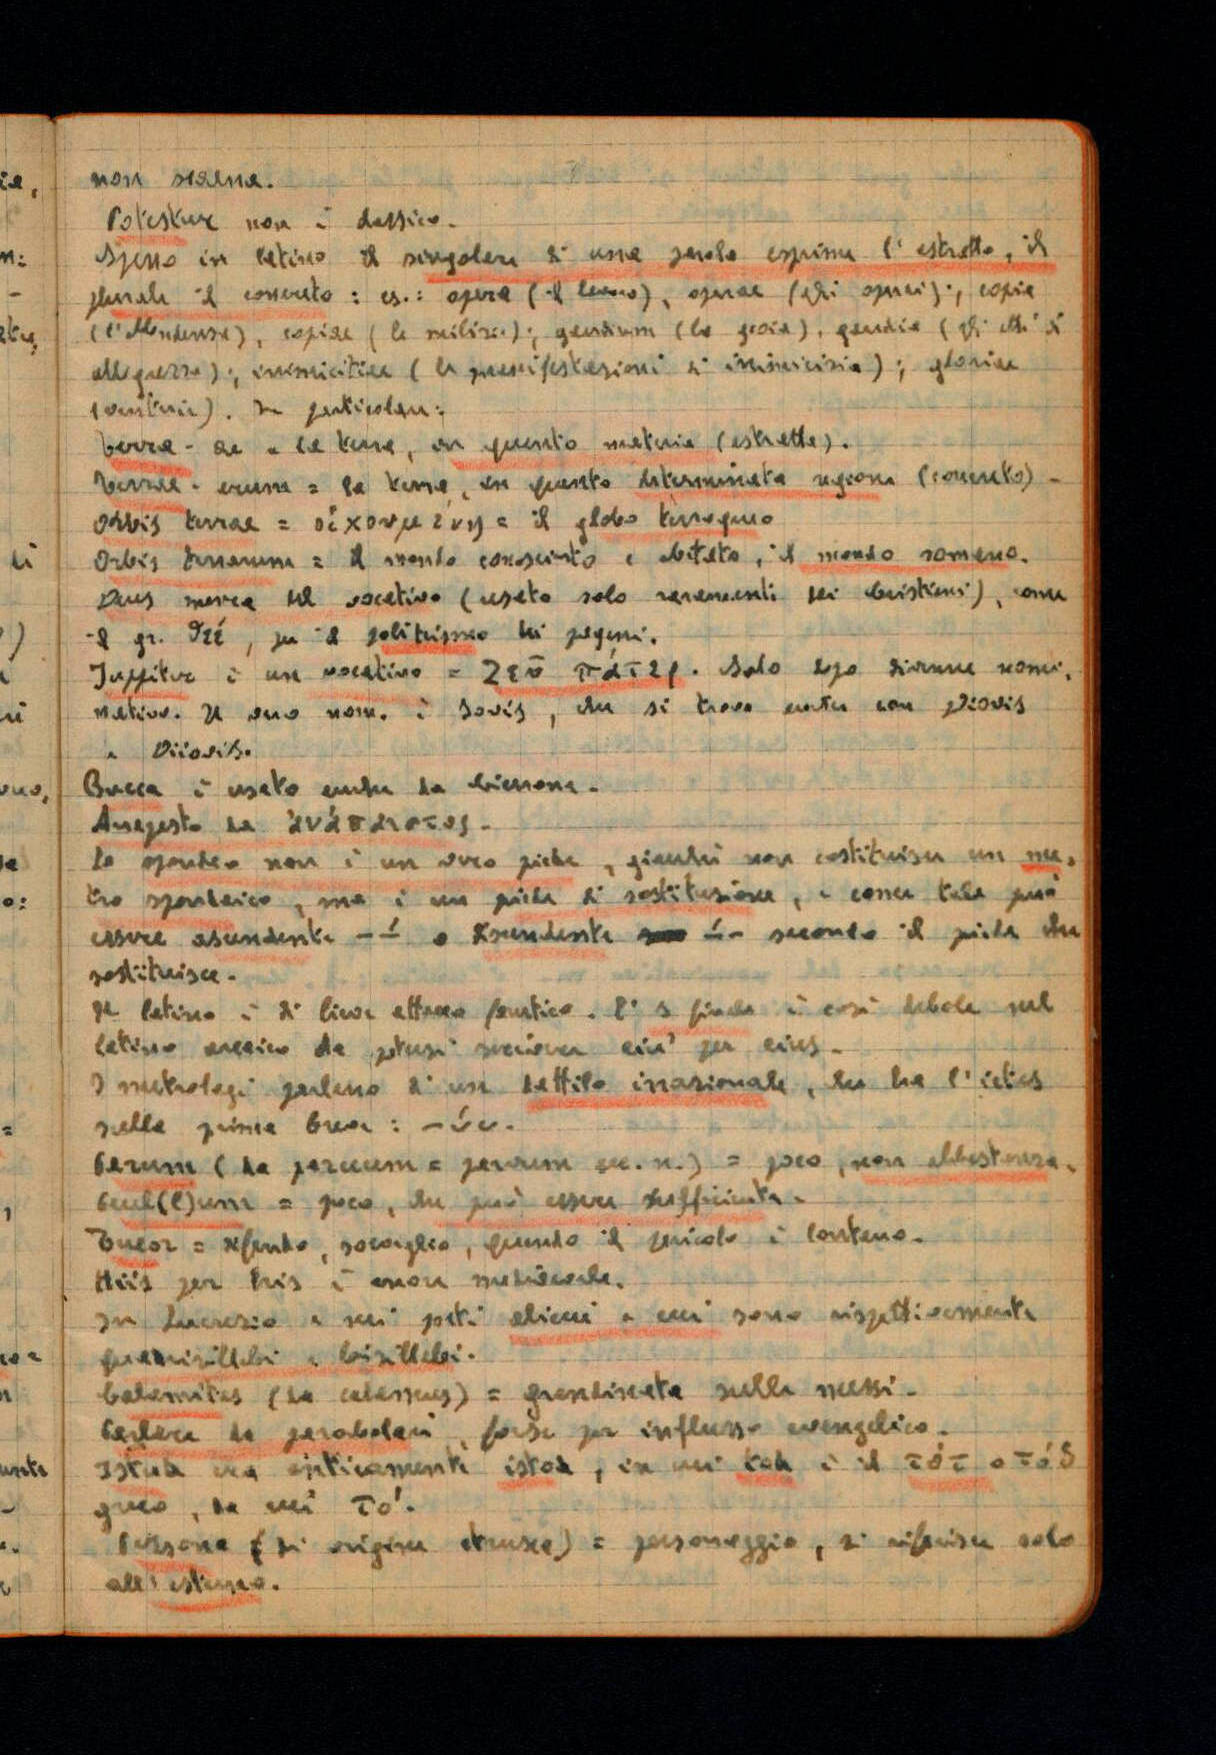 non scaena.
Potestur non è classico.
Spesso in latino il singolare di una parola esprime l'astratto, il
plurale il concreto: es.: opera (il lavoro), operae (gli operai); copia
(l'abbondanza), copiae (le milizie); gaudium (la gioia), gaudia (gli atti di
allegrezza); inimicitiae (le manifestazioni di inimicizia); gloriae
(vanterie). In particolare:
terra-ae = la terra, in quanto materia (astratta).
Terrae-arum = la terra, in quanto determinata regione (concreto)-
Orbis terrae = οἰκουμένη = il globo terraqueo
Orbis terrarum = il mondo conosciuto e abitato, il mondo romano.
Deus manca del vocativo (usato solo raramente dai cristiani), come
il gr. Θεέ, per il politeismo dei pagani.
Juppiter è un vocativo = Ζεῦ πάτερ. Solo dopo divenne nomi-
nativo. Il vero nom. è Jovis, che si trova anche con Diovis
e Diiovis.
Bucca è usato anche da Cicerone.
Anapesto da ἀνάπαιστος.
Lo spondeo non è un vero piede, giacché non costituisce un me-
tro spondaico, ma è un piede di sostituzione, e come tale può
essere ascendente -–́ o discendente –́- secondo il piede che
sostituisce.
Il latino è di lieve attacco fonetico. L's finale è così debole nel
latino arcaico da potersi scrivere eiu' per eius.
I metrologi parlano di un dattilo irrazionale, che ha l'ictus
nella prima breve: –ύυ.
Parum (da parvum = parvum acc. n.) = poco, non abbastanza.
Paul(l)um = poco, che può essere sufficiente.
Tueor = difendo, sorveglio, quando il pericolo è lontano.
Hiis per his è errore medioevale.
In Lucrezio e nei poeti alicui e cui sono rispettivamente
quadrisillabi e bisillabi.
Calamitas (da calamus) = grandinata sulle messi.
Parlare da parabolari, forse per influsso evangelico.
Istud era anticamente istod, in cui tod è il τότ o τόδ
greco, da cui τό.
Persona (di origine etrusca) = personaggio, si riferisce solo
all'esterno.